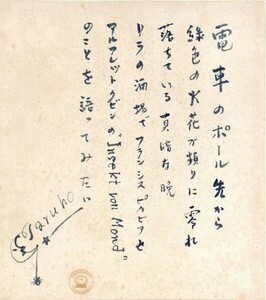 電車のポール先から
緑色の火花が頻りに零れ
落ちている真暗な晩
リラの酒場でフランシスピカビアと
アルフレットクビンの"Insekt von Mond"
のことを語ってみたい
Taruho